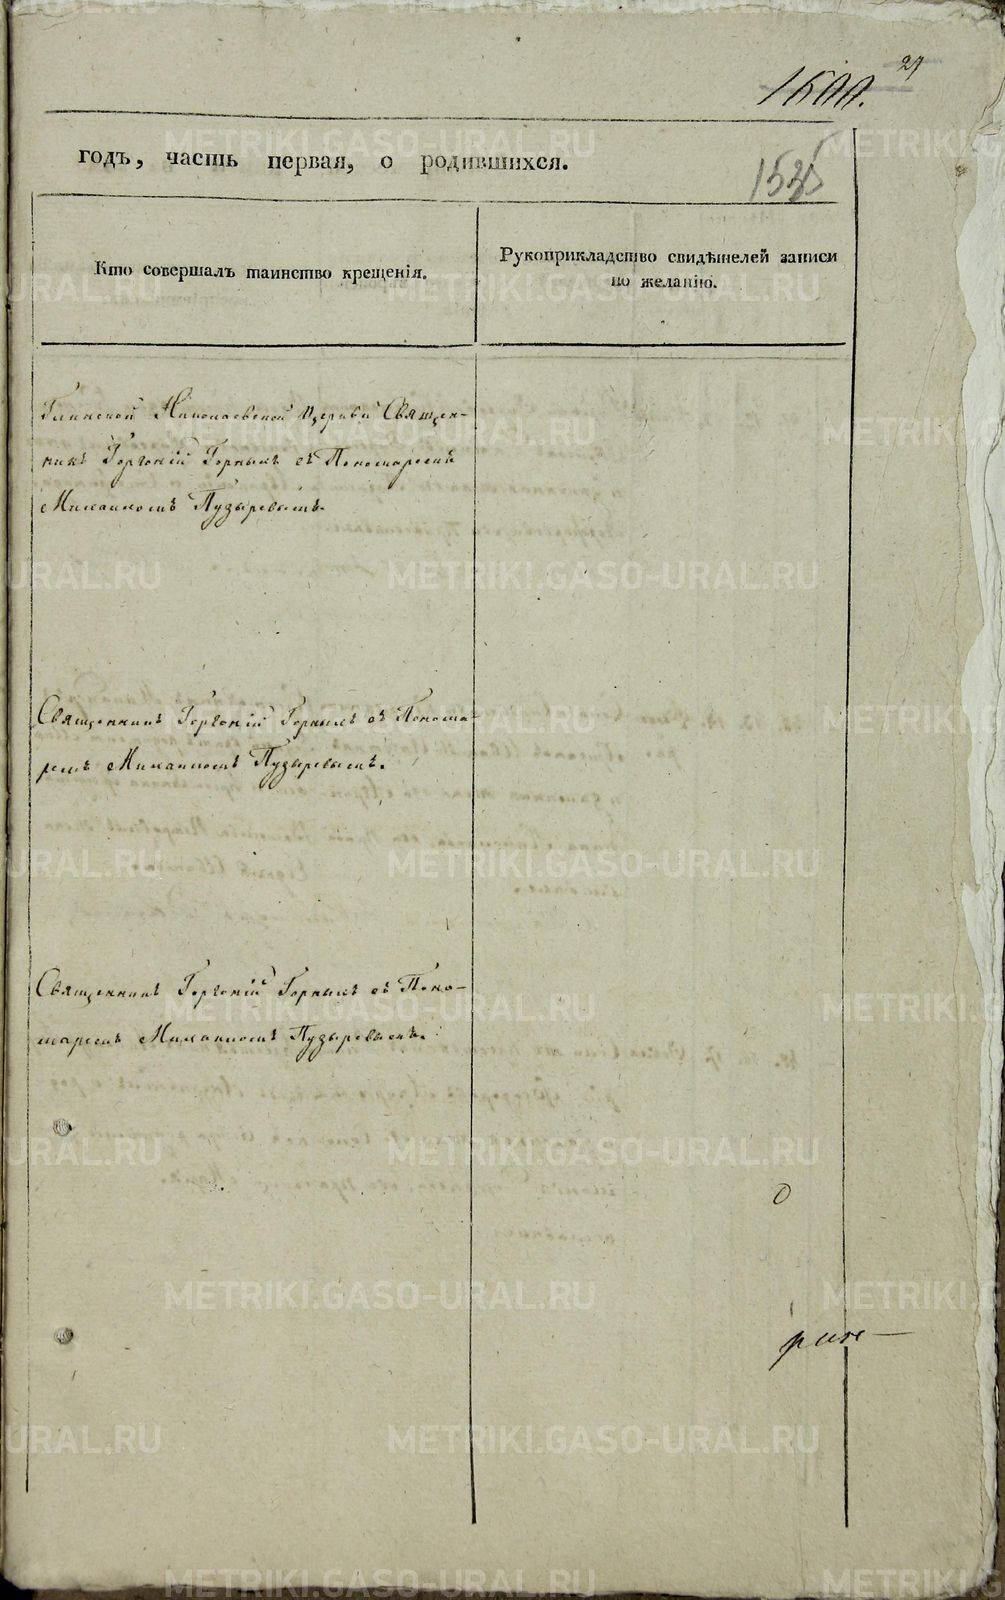 27
1535
годъ, часть первая, о родившихся.
Кто совершалъ таинство крещенія.
Рукоприкладство свидѣтелей записи
по желанію.
Глинской Николаевской Церкви Священ-
никъ Горгоній Горныхъ съ Пономаремъ
Михаиломъ Пузыревымъ.
Священникъ Горгоній Горныхъ съ Понома-
ремъ Михаиломъ Пузыревымъ.
Священникъ Горгоній Горныхъ съ Поно-
маремъ Михаиломъ Пузыревымъ.
METRIKI.GASO-URAL.RU